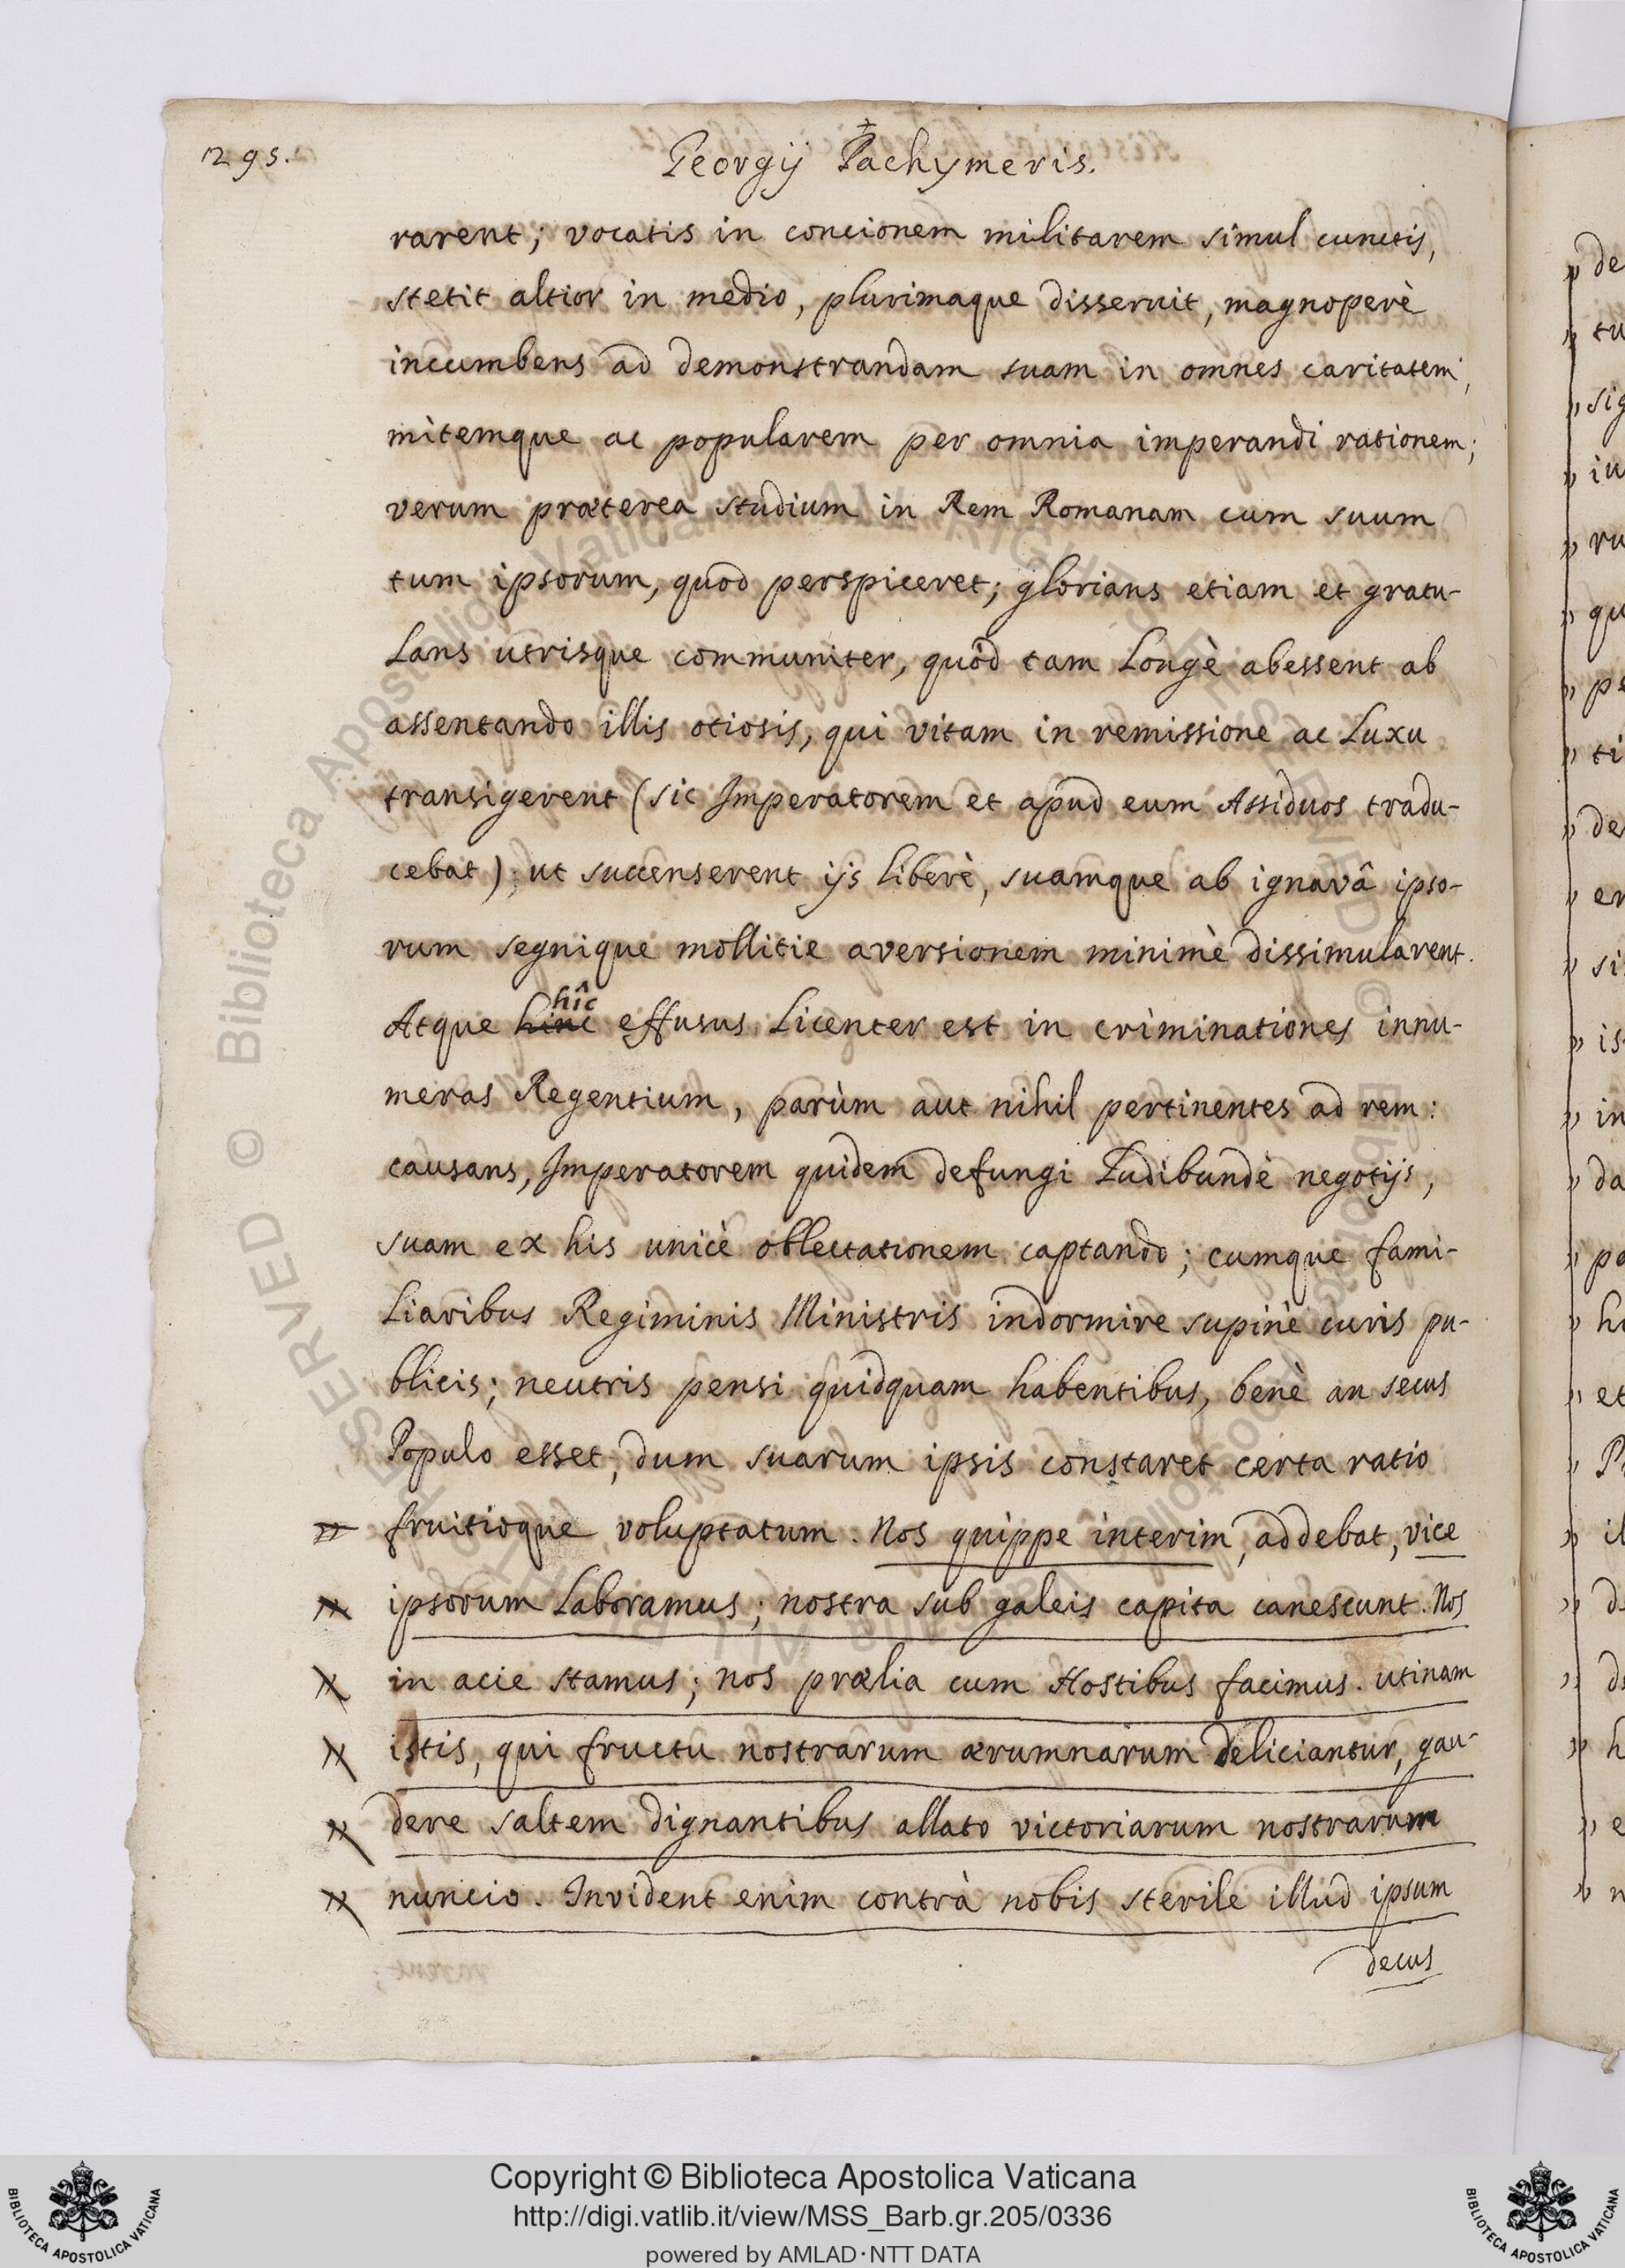 1295.
Georgij Pachymeris.
rarent; vocatis in concionem militarem simul cunctis,
stetit altior in medio, plurimaque disseruit, magnoperè
incumbens ad demonstrandam suam in omnes caritatem,
mitemque ac popularem per omnia imperandi rationem;
verum præterea studium in Rem Romanam cum suum
tum ipsorum, quod perspiceret; glorians etiam et gratu-
lans utrisque communiter, quòd tam longè abessent ab
assentando illis otiosis, qui vitam in remissione ac Luxu
transigerent (sic Imperatorem et apud eum Assiduos tradu-
cebat); ut succenserent ijs liberè, suamque ab ignavâ ipso-
rum segnique mollitie aversionem minimè dissimularent.
Atque hinc hîc effusus licenter est in criminationes innu-
meras Regentium, parùm aut nihil pertinentes ad rem:
causans, Imperatorem quidem defungi Ludibundè negotijs,
suam ex his unicè oblectationem captando; cumque fami-
liaribus Regiminis Ministris indormire supinè curis pu-
blicis; neutris pensi quidquam habentibus, benè an secus
Populo esset, dum suarum ipsis constaret certa ratio
fruitioque voluptatum. Nos quippe interim, addebat, vice
ipsorum laboramus; nostra sub galeis capita canescunt. Nos
in acie stamus; nos prælia cum Hostibus facimus. utinam
istis, qui fructu nostrarum ærumnarum deliciantur, gau-
dere saltem dignantibus allato victoriarum nostrarum
nuncio. Invident enim contrà nobis sterile illud ipsum
decus
Copyright © Biblioteca Apostolica Vaticana
http://digi.vatlib.it/view/MSS_Barb.gr.205/0336
powered by AMLAD·NTT DATA